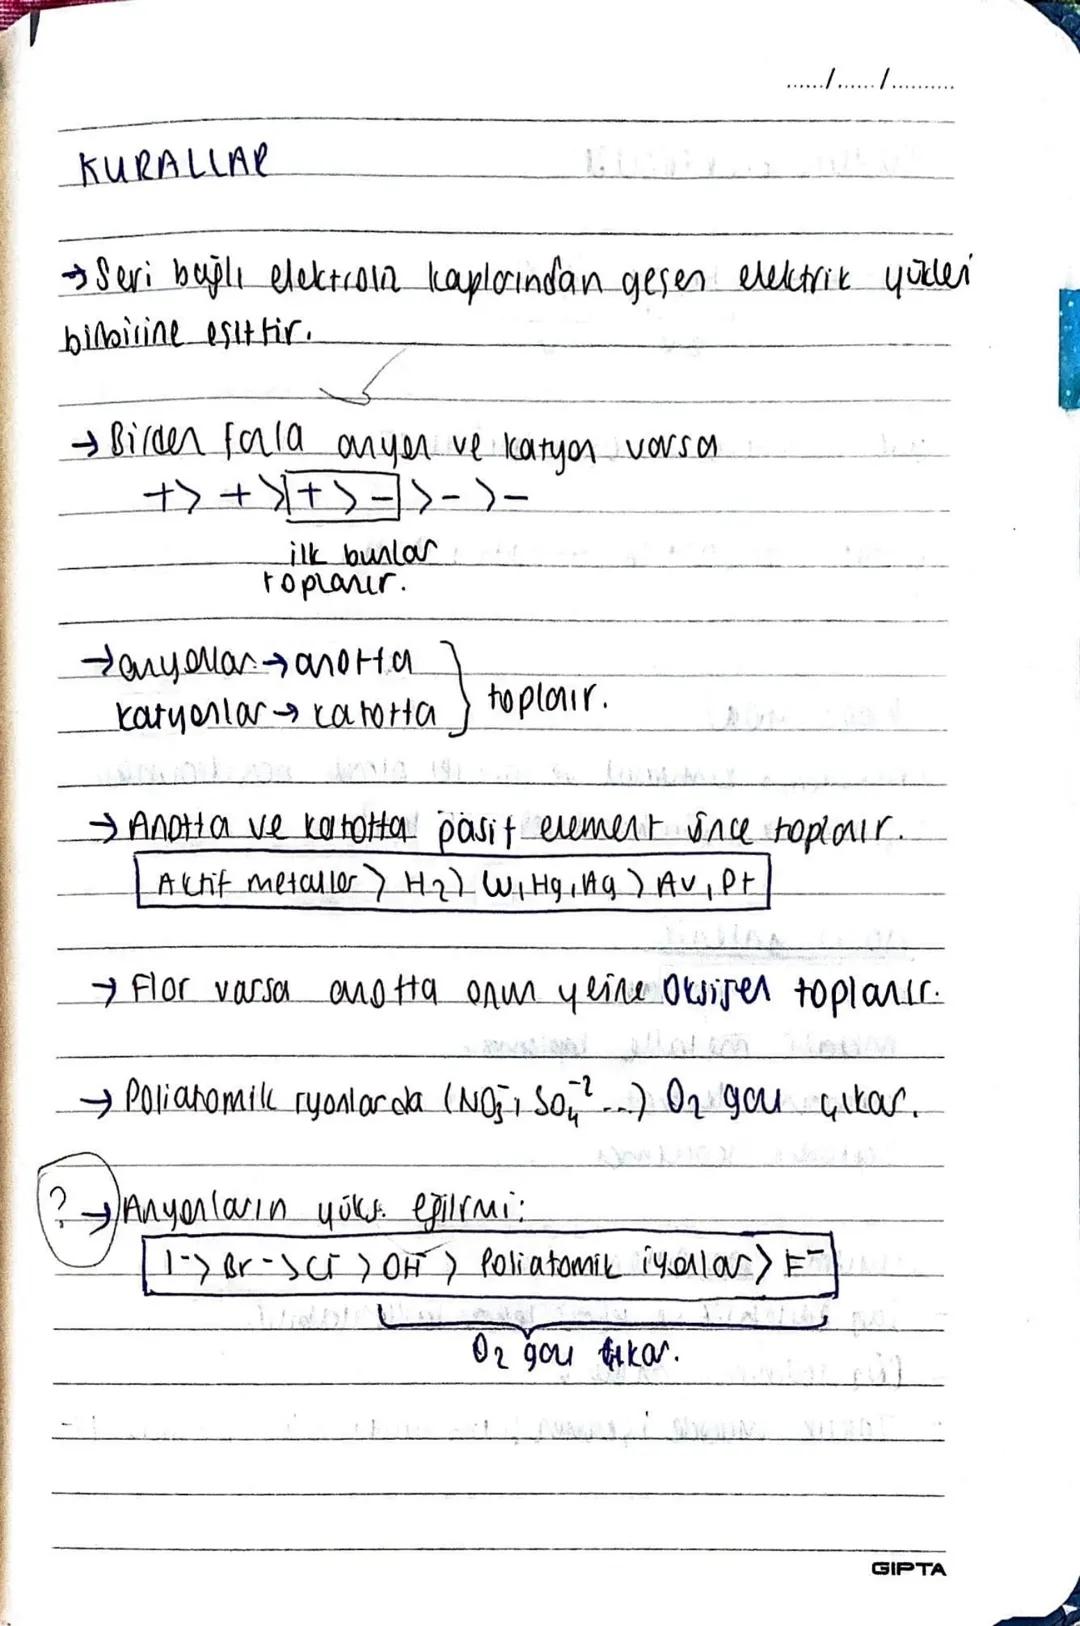 ....../....../..........
KURALLAR
→ Seri bağlı elektroliz kaplarından geçen elektrik yükleri
birbirine eşittir.
→ Birden fazla anyon ve katyon varsa
+> +>+>->->-
ilk bunlar
toplanır.
→ anyonlar → anotta
katyonlar → katotta } toplanır.
→ Anotta ve katotta pasif element önce toplanır.
Aktif metaller > H2 > Cu, Hg, Ag > Au, Pt
→ Flor varsa anotta onun yeine Oksijen toplanır.
→ Poliatomik iyonlarda (NO3⁻, SO4⁻² ...) O2 gazı çıkar.
? → Anyonların yüks. eğilimi:
I⁻ > Br⁻ > Cl⁻ > OH⁻ > Poliatomik iyonlar > F⁻
O2 gazı çıkar.
GIPTA